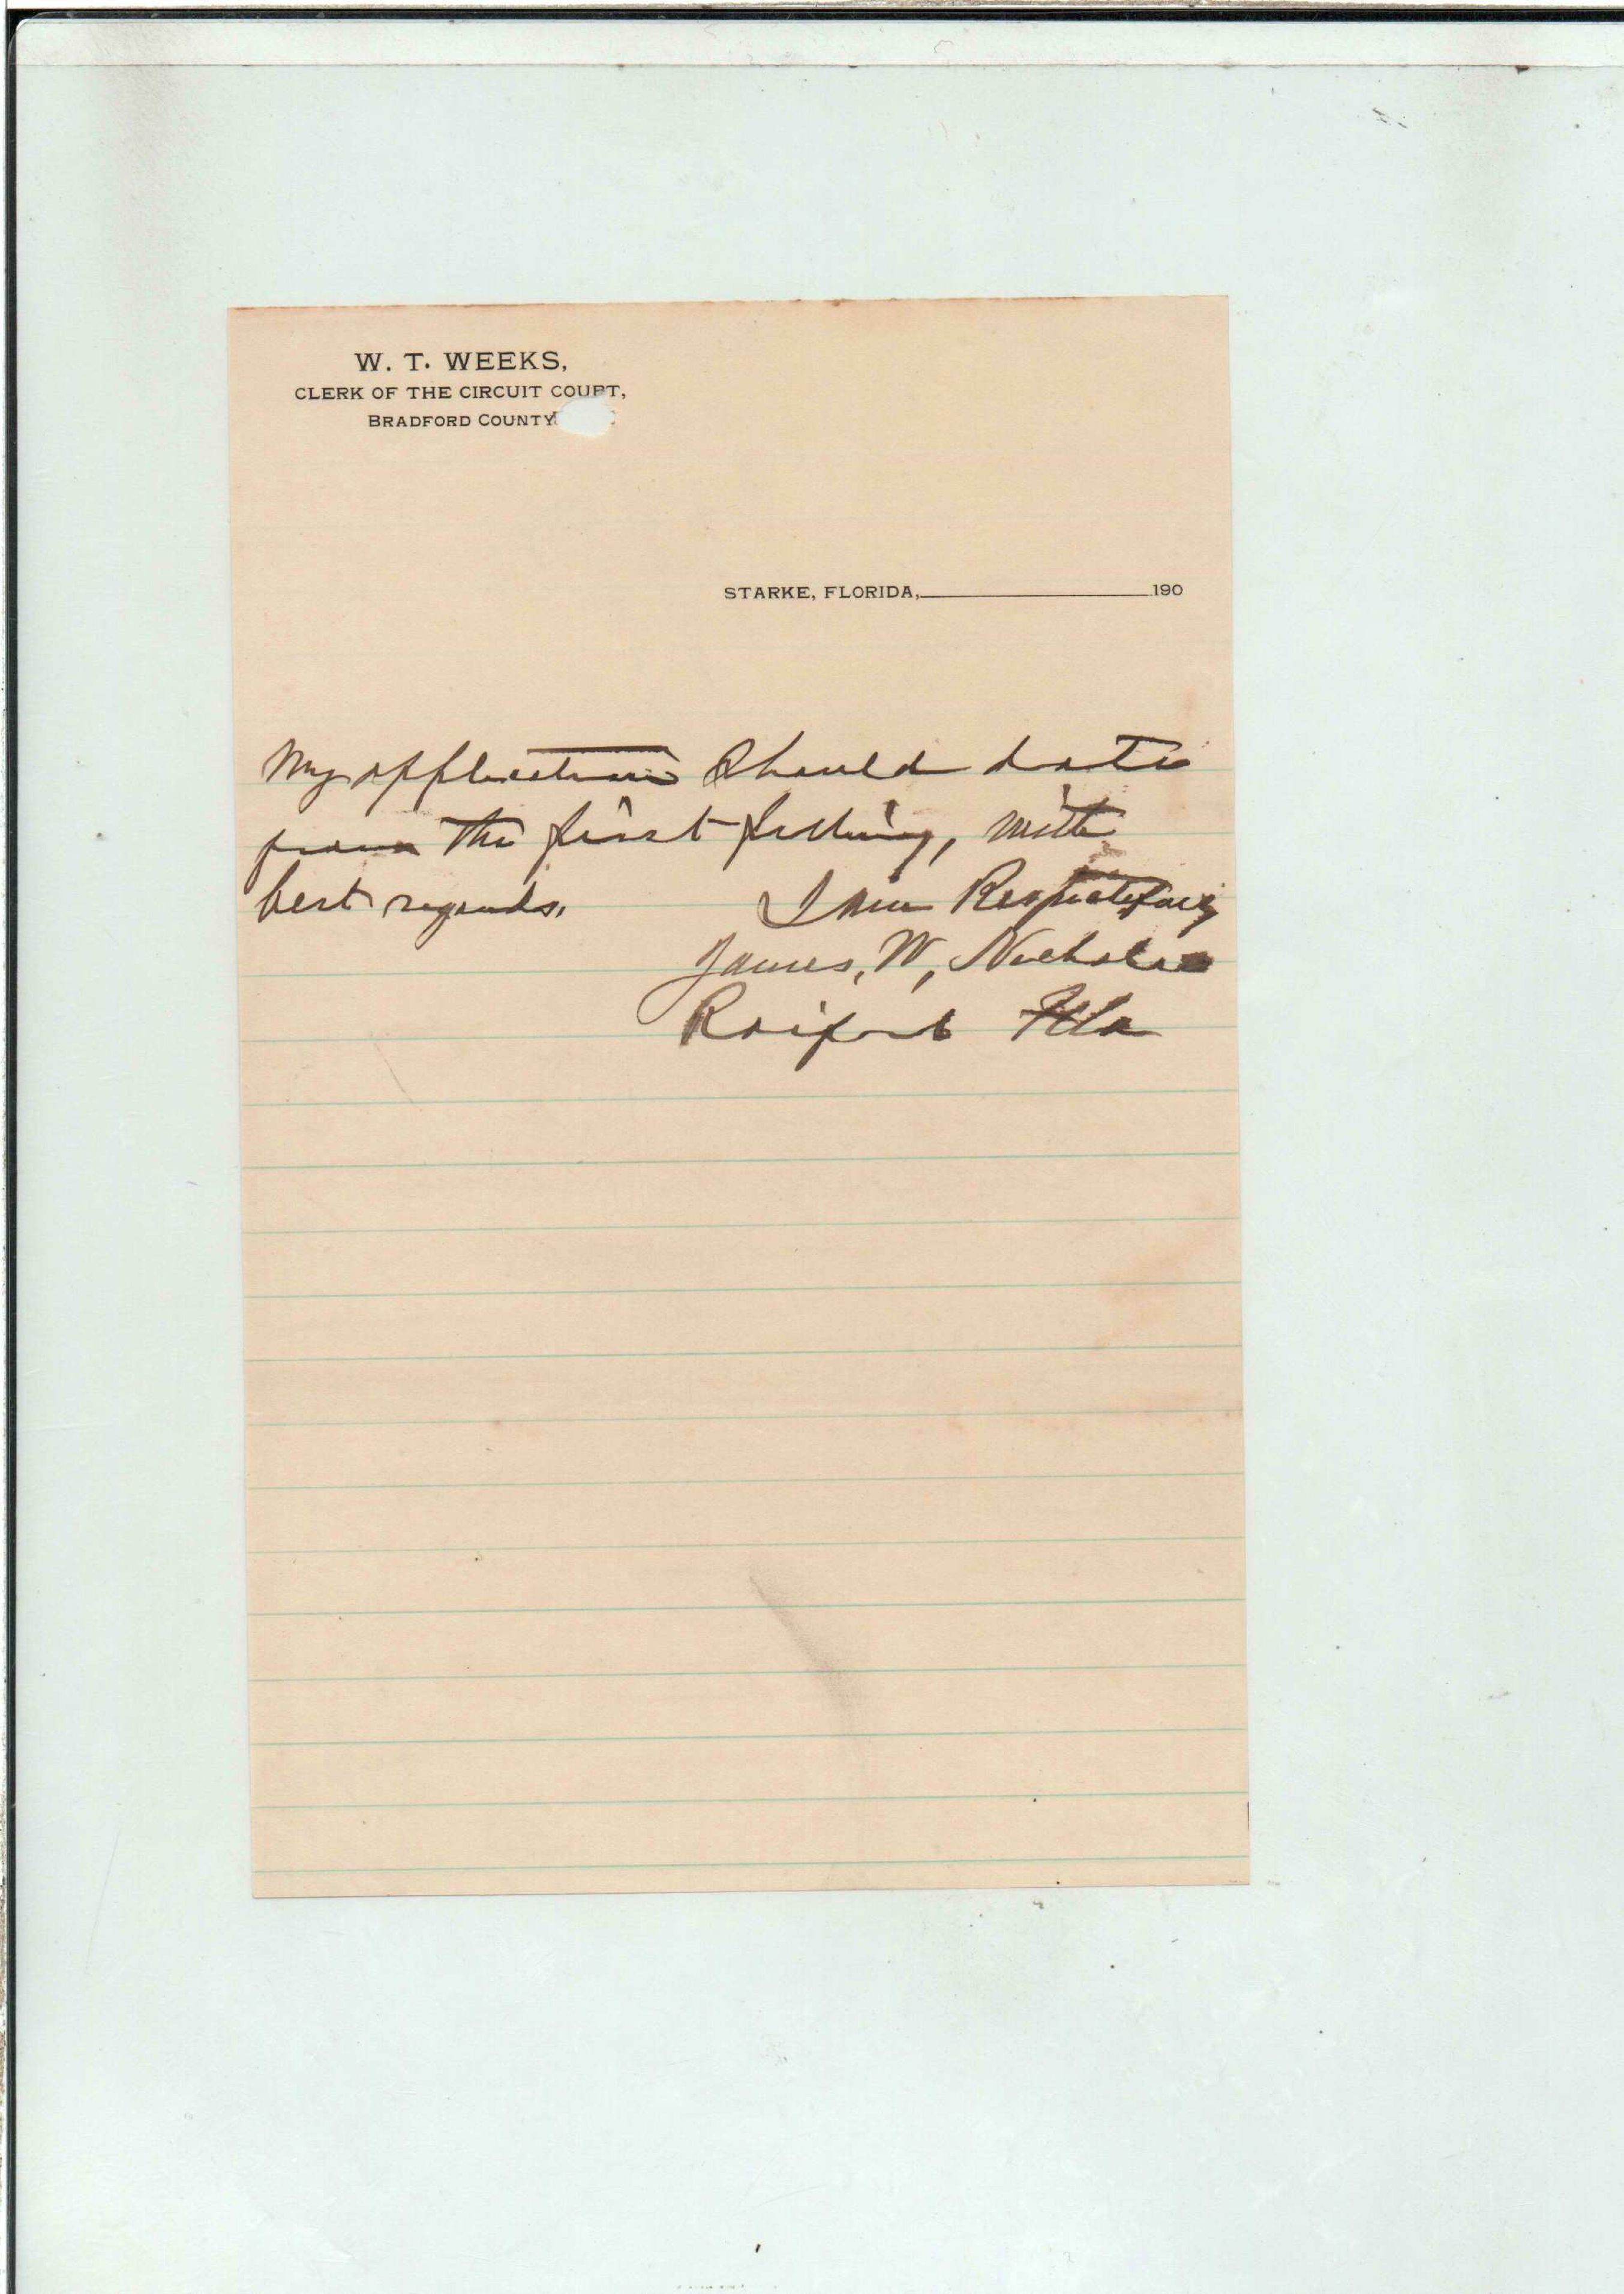 W. T. WEEKS,
CLERK OF THE CIRCUIT COURT,
BRADFORD COUNTY
STARKE, FLORIDA, 190
My application Should date
from the first filling, with
best regards. I am Respectfully
James, W, Nicholas
Raiford Fla